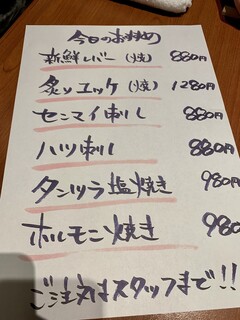 今日のおすすめ
新鮮レバー（焼） 880円
炙りユッケ（焼） 1280円
センマイ刺し 880円
ハツ刺し 880円
タンツラ塩焼き 980円
ホルモン焼き 980
ご注文はスタッフまで!!